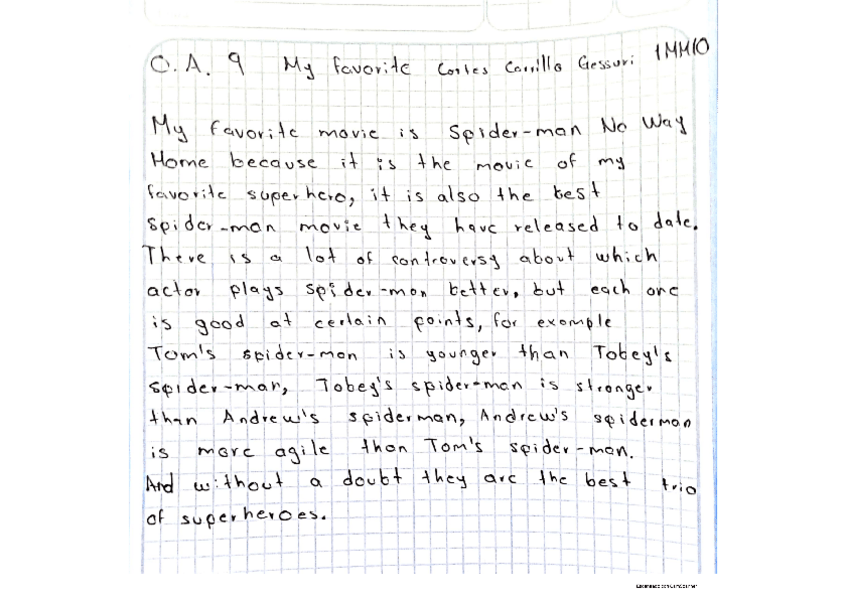 O.A. 9 My favorite Cortes Carrillo Gessuri 1MM10
My favorite movie is Spider-man No Way
Home because it is the movie of my
favorite superhero, it is also the best
spider-man movie they have released to date.
There is a lot of controversy about which
actor plays spider-man better, but each one
is good at certain points, for example
Tom's spider-man is younger than Tobey's
spider-man, Tobey's spider-man is stronger
than Andrew's spiderman, Andrew's spiderman
is more agile than Tom's spider-man.
And without a doubt they are the best trio
of superheroes.